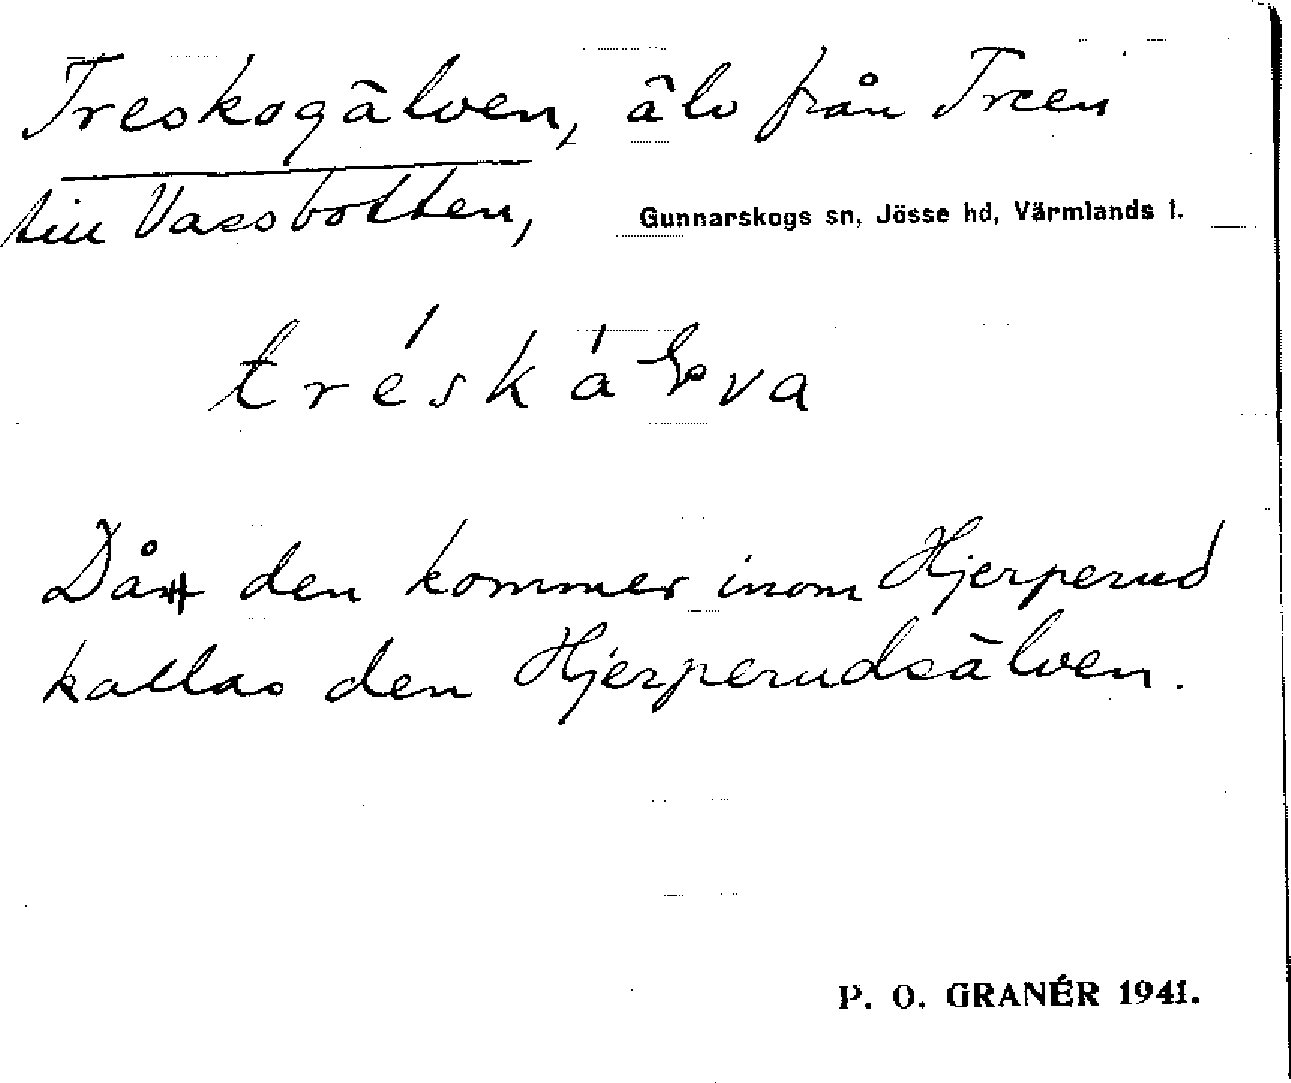 Treskogälven, älv från Treen
till Vassbotten, Gunnarskogs sn, Jösse hd, Värmlands l.
Då den kommer inom Hjerperud
kallas den Hjerperudsälven.
P. O. GRANÉR 1941.